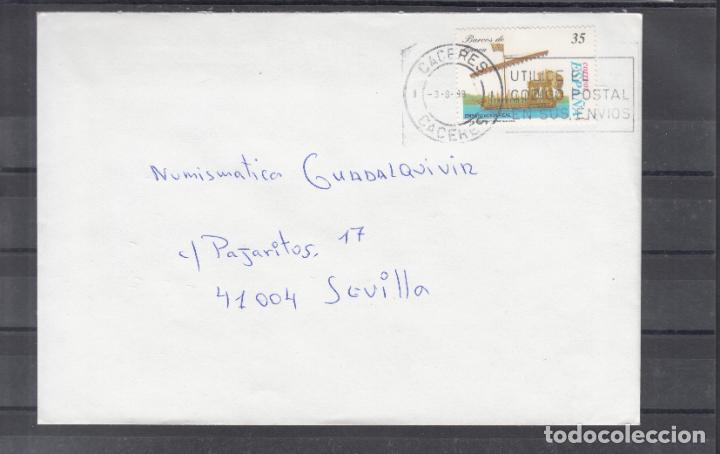 Barcos de
35
correos
ESPAÑA
CACERES
-3-8-99
CACERES
UTILICE EL
CODIGO POSTAL
EN SUS ENVIOS
Numismatica GUADALQUIVIR
c/ Pajaritos. 17
41004 Sevilla
todocoleccion.net